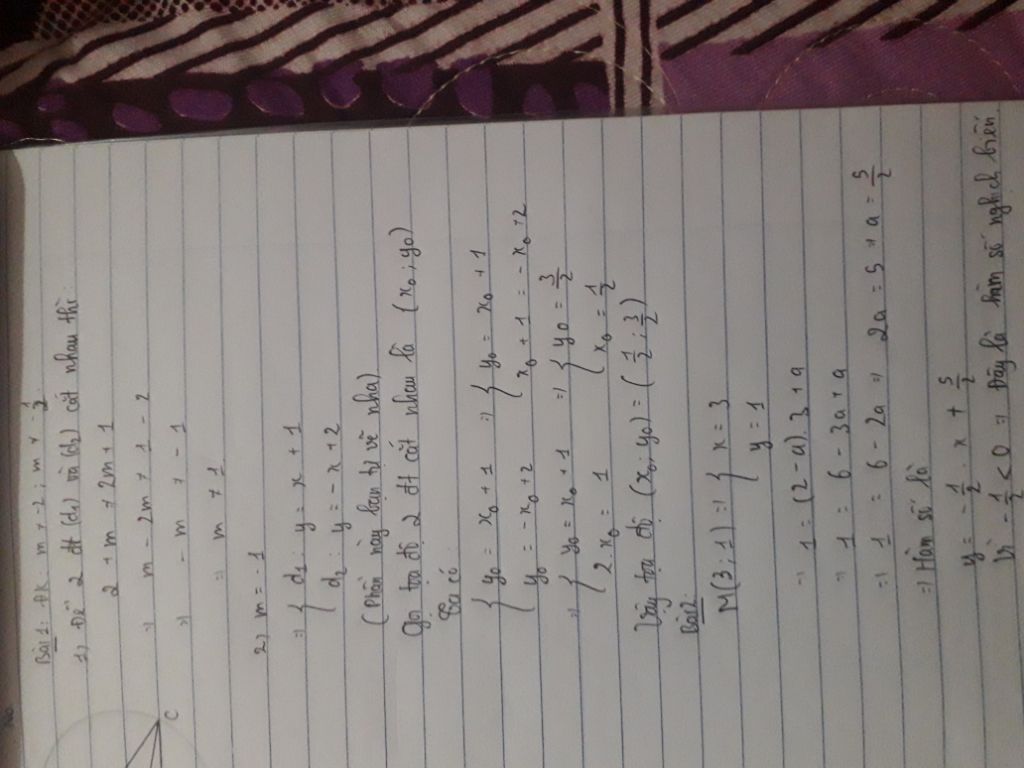 Bài 1: ĐK m ≠ -2; m ≠ -1/2
1) Để 2 đt (d1) và (d2) cắt nhau thì:
2 + m ≠ 2m + 1
⇒ m - 2m ≠ 1 - 2
⇒ - m ≠ - 1
⇒ m ≠ 1
2) m = - 1
⇒ { d1: y = x + 1
{ d2: y = - x + 2
(Phần này bạn tự vẽ nha)
Gọi tọa độ 2 đt cắt nhau là (x0; y0)
Ta có:
{ y0 = x0 + 1 ⇒ { y0 = x0 + 1
y0 = - x0 + 2 x0 + 1 = - x0 + 2
⇒ { y0 = x0 + 1 ⇒ { y0 = 3/2
2x0 = 1 x0 = 1/2
Vậy tọa độ (x0; y0) = (1/2; 3/2)
Bài 2:
M(3; 1) ⇒ { x = 3
y = 1
⇒ 1 = (2 - a).3 + a
⇒ 1 = 6 - 3a + a
⇒ 1 = 6 - 2a ⇒ 2a = 5 ⇒ a = 5/2
⇒ Hàm số là
y = - 1/2 . x + 5/2
Vì - 1/2 < 0 ⇒ Đây là hàm số nghịch biến
C